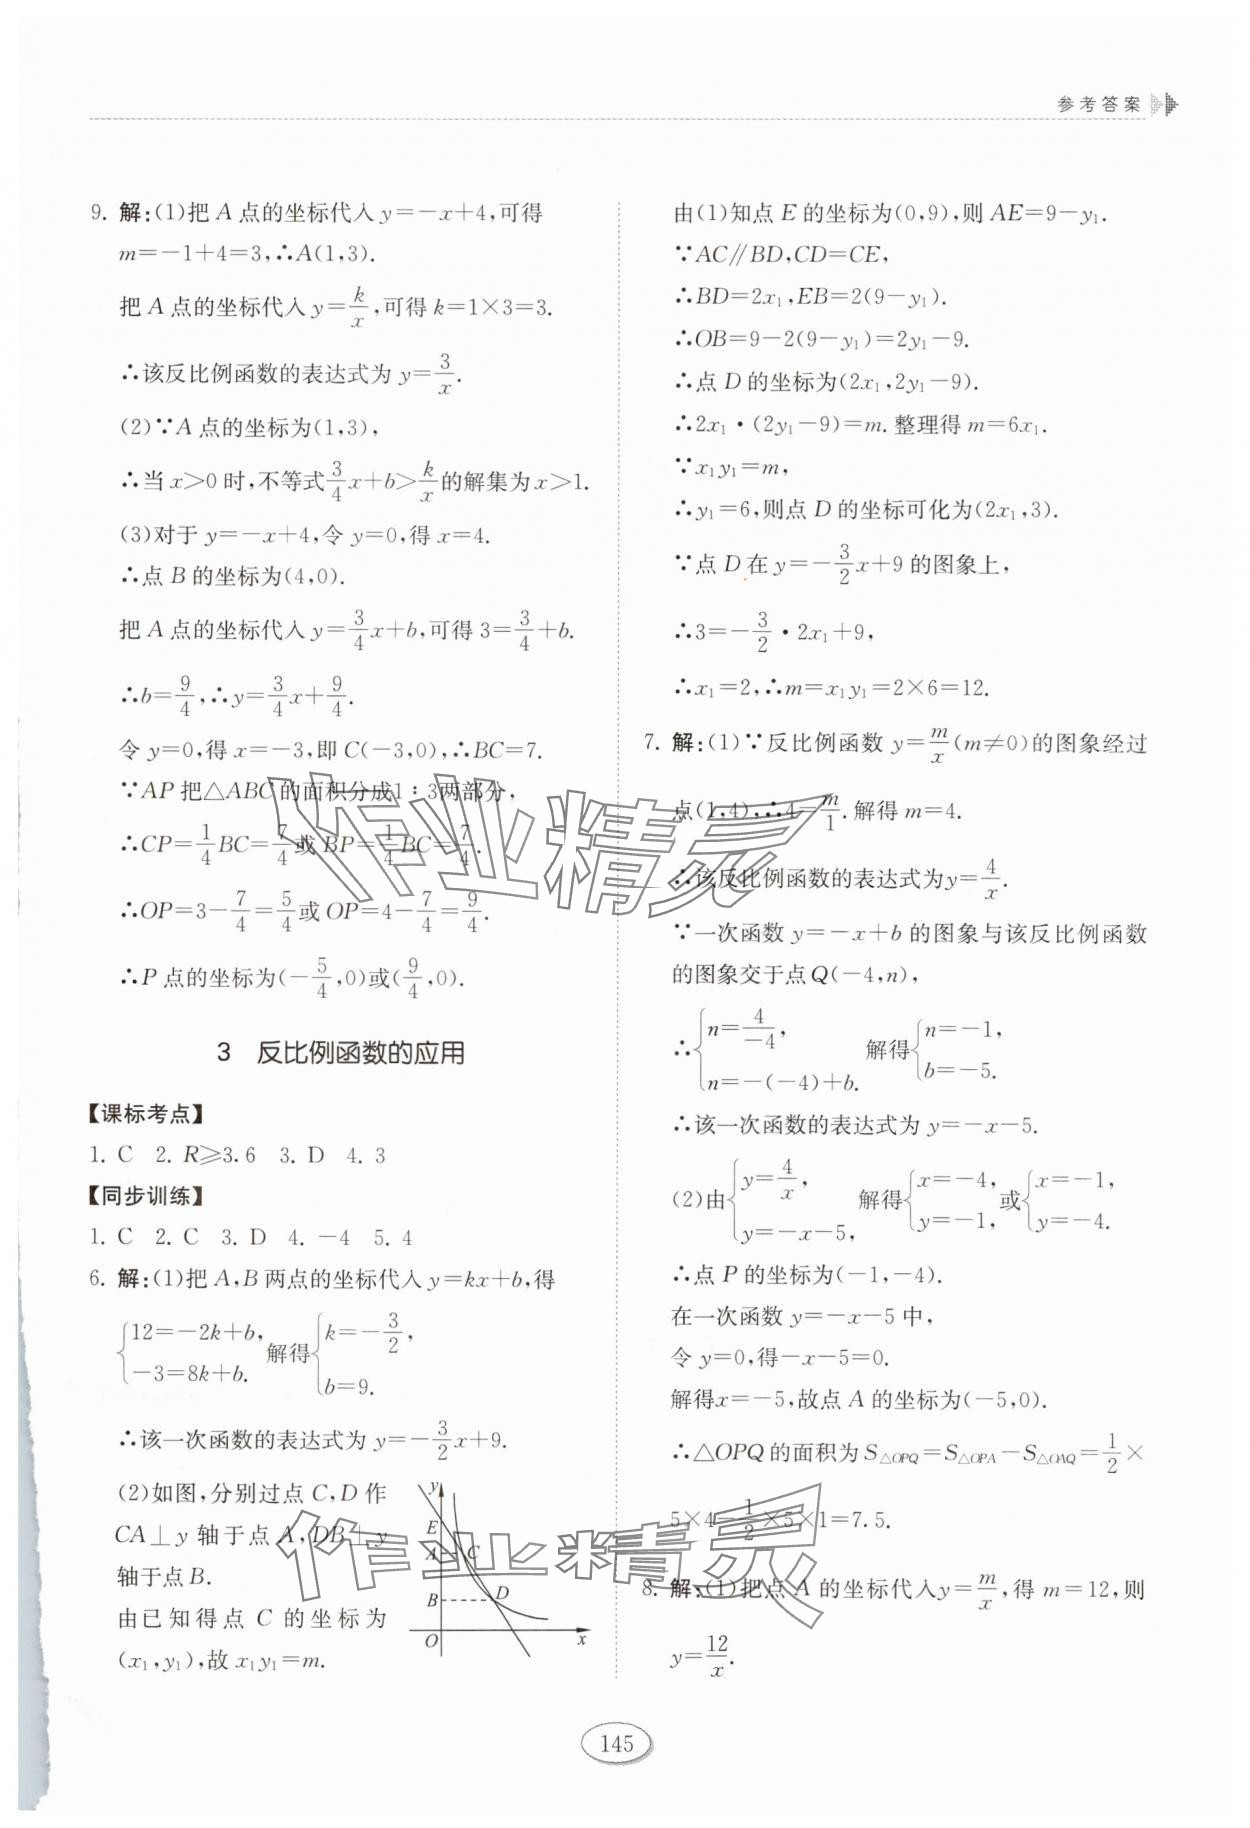 参考答案
9. 解:(1)把 A 点的坐标代入 y=-x+4,可得
m=-1+4=3,∴A(1,3).
把 A 点的坐标代入 y=k/x,可得 k=1×3=3.
∴该反比例函数的表达式为 y=3/x.
(2)∵A 点的坐标为(1,3),
∴当 x>0 时,不等式3/4x+b>k/x的解集为 x>1.
(3)对于 y=-x+4,令 y=0,得 x=4.
∴点 B 的坐标为(4,0).
把 A 点的坐标代入 y=3/4x+b,可得 3=3/4+b.
∴b=9/4,∴y=3/4x+9/4.
令 y=0,得 x=-3,即 C(-3,0),∴BC=7.
∵AP 把△ABC 的面积分成1∶3两部分,
∴CP=1/4BC=7/4或 BP=1/4BC=7/4.
∴OP=3-7/4=5/4或 OP=4-7/4=9/4.
∴P 点的坐标为(-5/4,0)或(9/4,0).
3 反比例函数的应用
【课标考点】
1. C 2. R≥3.6 3. D 4. 3
【同步训练】
1. C 2. C 3. D 4. -4 5. 4
6. 解:(1)把 A,B 两点的坐标代入 y=kx+b,得
{12=-2k+b, -3=8k+b. 解得{k=-3/2, b=9.
∴该一次函数的表达式为 y=-3/2x+9.
(2)如图,分别过点 C,D 作
CA⊥y 轴于点 A,DB⊥y
轴于点 B.
由已知得点 C 的坐标为
(x₁,y₁),故 x₁y₁=m.
y
E
A C
B D
O x
由(1)知点 E 的坐标为(0,9),则 AE=9-y₁.
∵AC∥BD,CD=CE,
∴BD=2x₁,EB=2(9-y₁).
∴OB=9-2(9-y₁)=2y₁-9.
∴点 D 的坐标为(2x₁,2y₁-9).
∴2x₁·(2y₁-9)=m.整理得 m=6x₁.
∵x₁y₁=m,
∴y₁=6,则点 D 的坐标可化为(2x₁,3).
∵点 D 在 y=-3/2x+9 的图象上,
∴3=-3/2·2x₁+9,
∴x₁=2,∴m=x₁y₁=2×6=12.
7. 解:(1)∵反比例函数 y=m/x(m≠0)的图象经过
点(1,4),∴4=m/1.解得 m=4.
∴该反比例函数的表达式为y=4/x.
∵一次函数 y=-x+b 的图象与该反比例函数
的图象交于点Q(-4,n),
∴{n=4/-4, n=-(-4)+b. 解得{n=-1, b=-5.
∴该一次函数的表达式为 y=-x-5.
(2)由{y=4/x, y=-x-5, 解得{x=-4, y=-1, 或{x=-1, y=-4.
∴点 P 的坐标为(-1,-4).
在一次函数 y=-x-5 中,
令 y=0,得-x-5=0.
解得x=-5,故点 A 的坐标为(-5,0).
∴△OPQ 的面积为 S△OPQ=S△OPA-S△OAQ=1/2×
5×4-1/2×5×1=7.5.
8. 解:(1)把点 A 的坐标代入y=m/x,得 m=12,则
y=12/x.
作业精灵
作业精灵
145